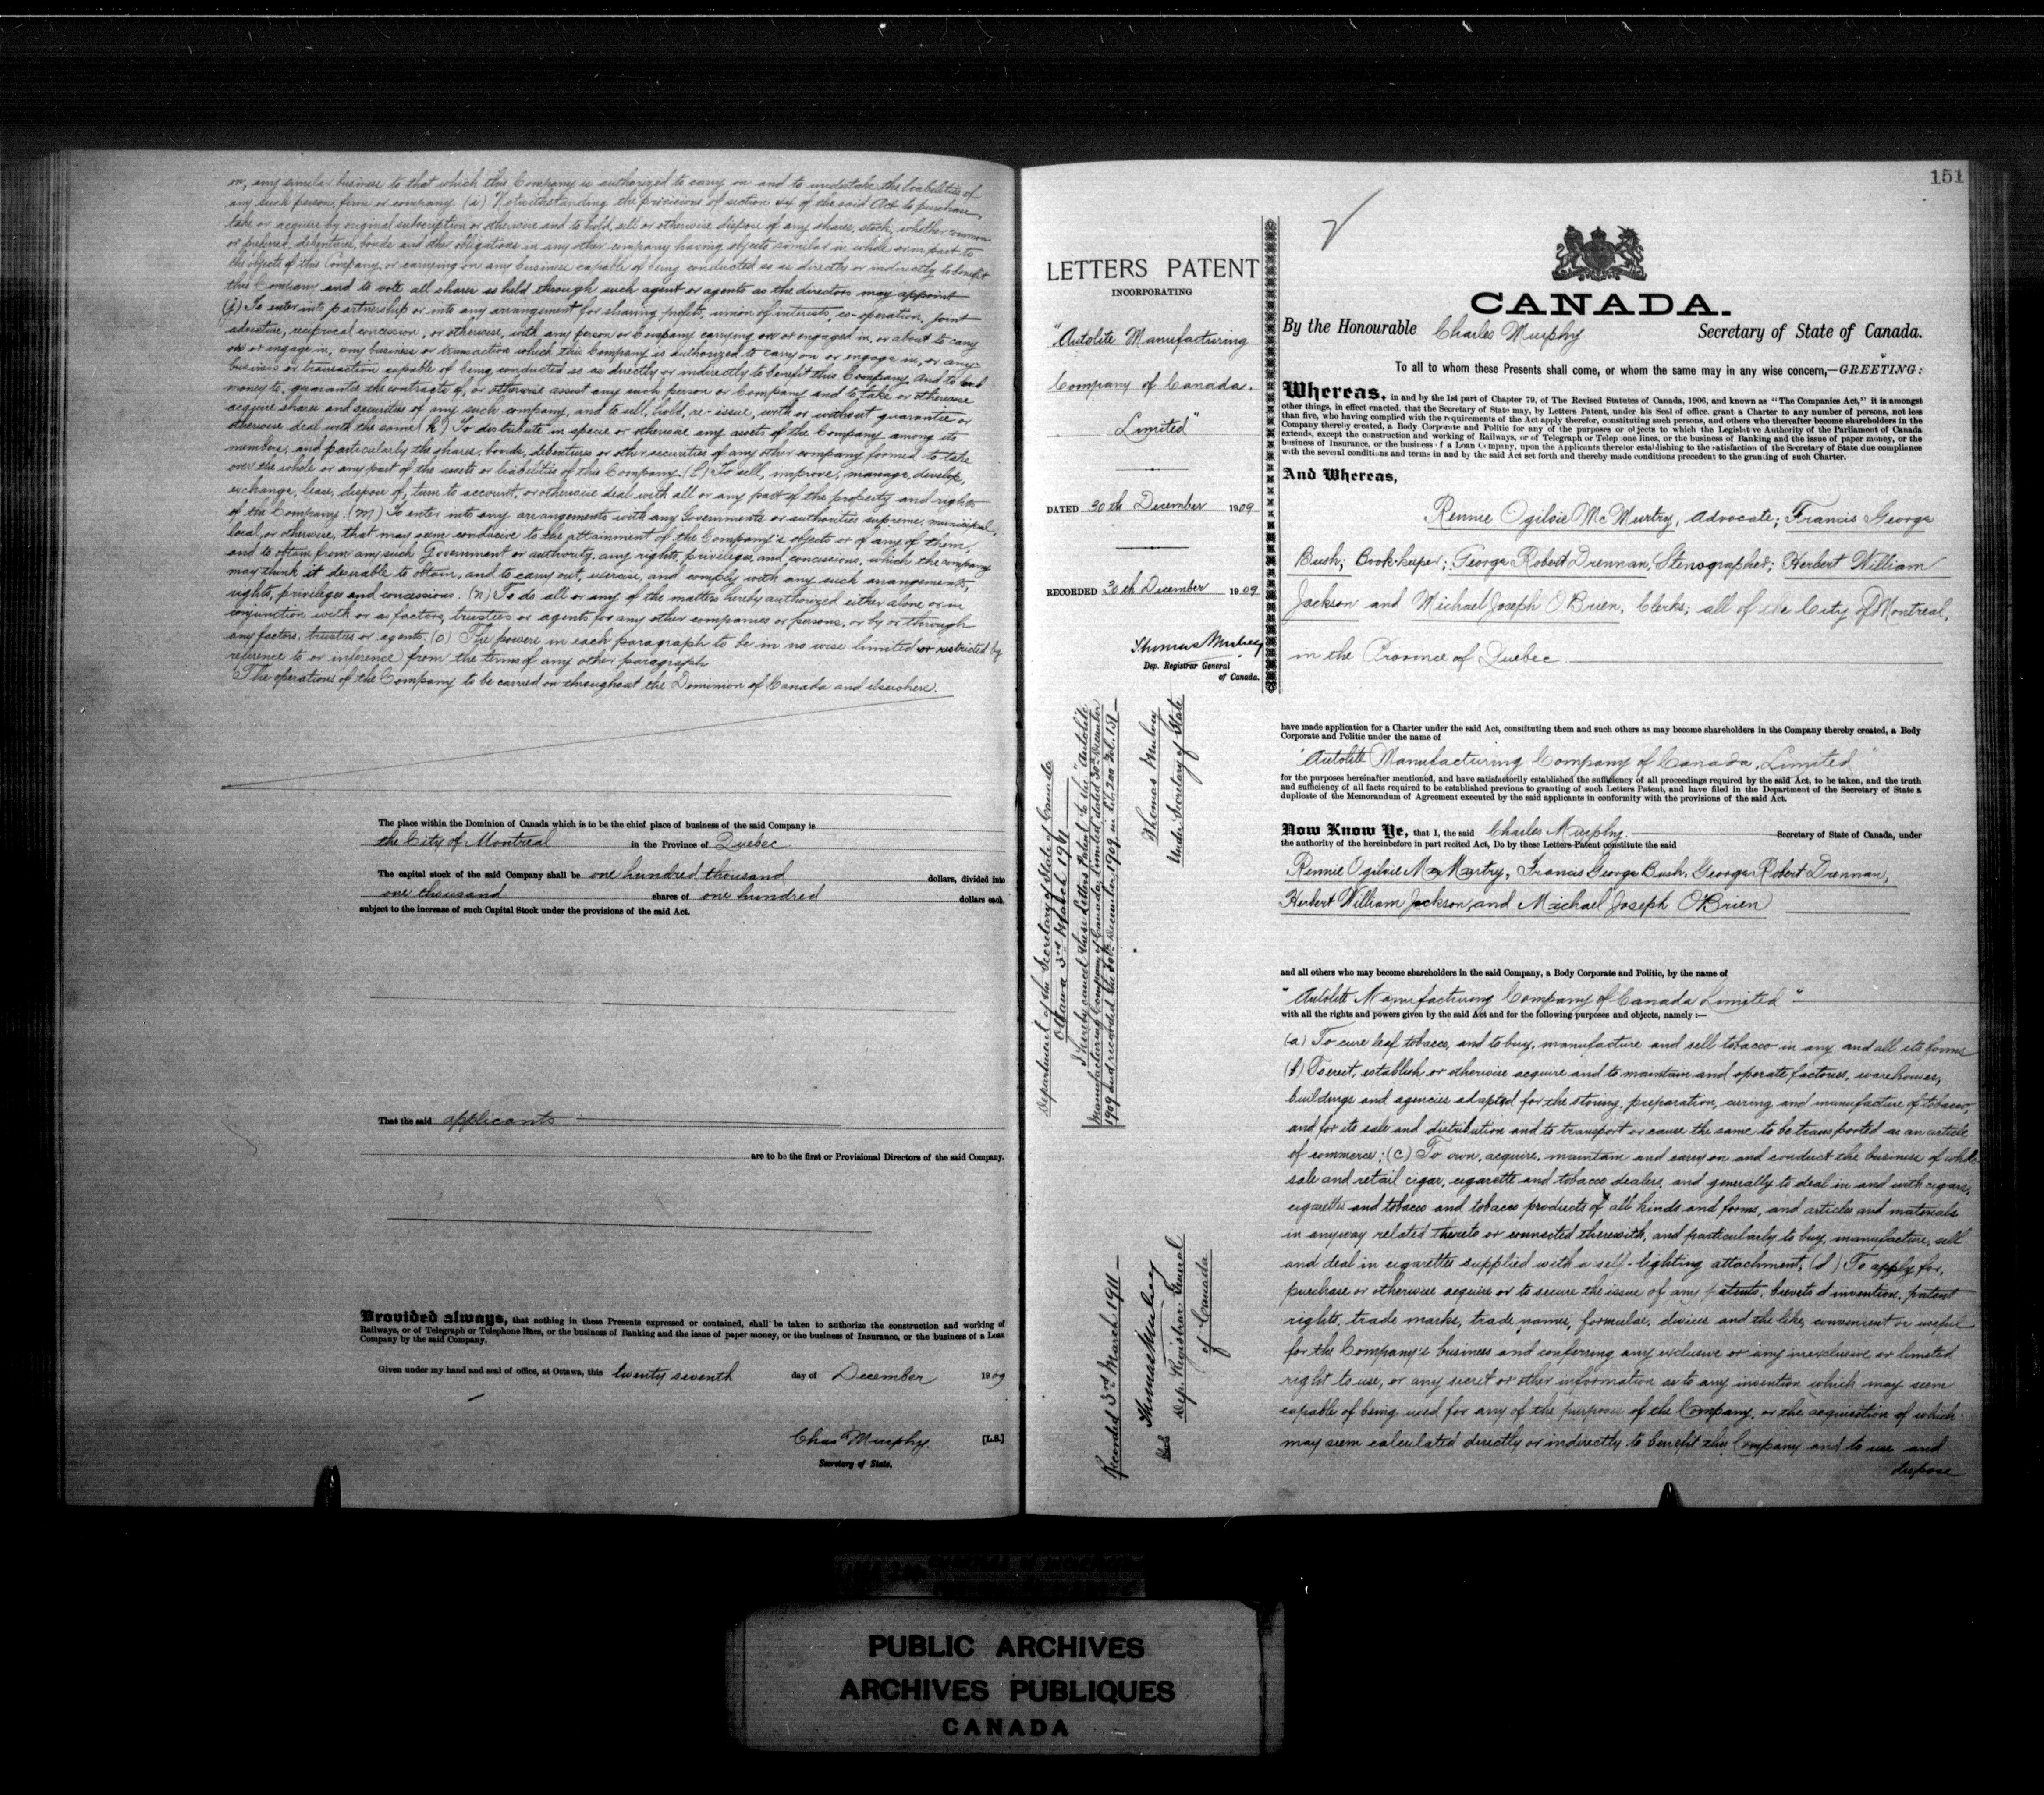 or, any similar business to that which this Company is authorized to carry on and to undertake the liabilities of
any such person, firm or company. (i) Notwithstanding the provisions of section 44 of the said Act to purchase,
take or acquire by original subscription or otherwise and to hold, sell or otherwise dispose of any shares, stock, whether common
or preferred, debentures, bonds and other obligations in any other company having objects similar in whole or in part to
the objects of this Company or carrying on any business capable of being conducted so as directly or indirectly to benefit
this Company and to vote all shares so held through such agent or agents as the directors may appoint
(j) To enter into partnership or into any arrangement for sharing profits, union of interests, co-operation, joint
adventure, reciprocal concession, or otherwise, with any person or Company carrying on or engaged in, or about to carry
on or engage in, any business or transaction which this Company is authorized to carry on or engage in, or any
business or transaction capable of being conducted so as directly or indirectly to benefit this Company. And to lend
money to, guarantee the contracts of, or otherwise assist any such person or Company and to take or otherwise
acquire shares and securities of any such company, and to sell, hold, re-issue, with or without guarantee or
otherwise deal with the same (k) To distribute in specie or otherwise any assets of the Company among its
members, and particularly the shares, bonds, debentures or other securities of any other company formed to take
over the whole or any part of the assets or liabilities of this Company. (l) To sell, improve, manage, develop,
exchange, lease, dispose of, turn to account, or otherwise deal with all or any part of the property and rights
of the Company. (m) To enter into any arrangements with any Governments or authorities supreme, municipal,
local, or otherwise, that may seem conducive to the attainment of the Company's objects or of any of them,
and to obtain from any such Government or authority, any rights, privileges, and concessions, which the company
may think it desirable to obtain, and to carry out, exercise, and comply with any such arrangements,
rights, privileges and concessions. (n) To do all or any of the matters hereby authorized either alone or in
conjunction with or as factors, trustees or agents for any other companies or persons, or by or through
any factors, trustees or agents. (o) The powers in each paragraph to be in no wise limited or restricted by
reference to or inference from the terms of any other paragraph
The operations of the Company to be carried on throughout the Dominion of Canada and elsewhere.
The place within the Dominion of Canada which is to be the chief place of business of the said Company is
the City of Montreal in the Province of Quebec
The capital stock of the said Company shall be one hundred thousand dollars, divided into
one thousand shares of one hundred dollars each,
subject to the increase of such Capital Stock under the provisions of the said Act.
That the said applicants
are to be the first or Provisional Directors of the said Company.
Provided always, that nothing in these Presents expressed or contained, shall be taken to authorize the construction and working of
Railways, or of Telegraph or Telephone lines, or the business of Banking and the issue of paper money, or the business of Insurance, or the business of a Loan
Company by the said Company.
Given under my hand and seal of office, at Ottawa, this twenty seventh day of December 1909
Chas Murphy. [L.S.]
Secretary of State.
151
LETTERS PATENT
INCORPORATING
"Autolite Manufacturing
Company of Canada,
Limited"
DATED 30th December 1909
RECORDED 30th December 1909
Thomas Mulvey
Dep. Registrar General
of Canada.
Department of the Secretary of State of Canada
Ottawa 3rd March 1911
I hereby cancel these Letters Patent to the "Autolite
Manufacturing Company of Canada, Limited, dated 30th December
1909 and recorded the 30th December, 1909 in Lib. 200 Fol. 151
Thomas Mulvey
Under Secretary of State
Recorded 3rd March 1911
Thomas Mulvey
Dep. Registrar General
of Canada
CANADA.
By the Honourable Charles Murphy Secretary of State of Canada.
To all to whom these Presents shall come, or whom the same may in any wise concern,—GREETING:
Whereas, in and by the 1st part of Chapter 79, of The Revised Statutes of Canada, 1906, and known as "The Companies Act," it is amongst
other things, in effect enacted, that the Secretary of State may, by Letters Patent, under his Seal of office, grant a Charter to any number of persons, not less
than five, who having complied with the requirements of the Act apply therefor, constituting such persons, and others who thereafter become shareholders in the
Company thereby created, a Body Corporate and Politic for any of the purposes or objects to which the Legislative Authority of the Parliament of Canada
extends, except the construction and working of Railways, or of Telegraph or Telephone lines, or the business of Banking and the issue of paper money, or the
business of Insurance, or the business of a Loan Company, upon the Applicants therefor establishing to the satisfaction of the Secretary of State due compliance
with the several conditions and terms in and by the said Act set forth and thereby made conditions precedent to the granting of such Charter.
And Whereas,
Rennie Ogilvie McMurtry, Advocate; Francis George
Bush; Book-keeper; George Robert Drennan, Stenographer; Herbert William
Jackson and Michael Joseph O'Brien, Clerks; all of the City of Montreal,
in the Province of Quebec.
have made application for a Charter under the said Act, constituting them and such others as may become shareholders in the Company thereby created, a Body
Corporate and Politic under the name of
"Autolite Manufacturing Company of Canada, Limited"
for the purposes hereinafter mentioned, and have satisfactorily established the sufficiency of all proceedings required by the said Act, to be taken, and the truth
and sufficiency of all facts required to be established previous to granting of such Letters Patent, and have filed in the Department of the Secretary of State a
duplicate of the Memorandum of Agreement executed by the said applicants in conformity with the provisions of the said Act.
Now Know Ye, that I, the said Charles Murphy. Secretary of State of Canada, under
the authority of the hereinbefore in part recited Act, Do by these Letters-Patent constitute the said
Rennie Ogilvie McMurtry, Francis George Bush, George Robert Drennan,
Herbert William Jackson, and Michael Joseph O'Brien
and all others who may become shareholders in the said Company, a Body Corporate and Politic, by the name of
"Autolite Manufacturing Company of Canada Limited"
with all the rights and powers given by the said Act and for the following purposes and objects, namely:—
(a) To cure leaf tobacco, and to buy, manufacture and sell tobacco in any and all its forms
(b) To erect, establish or otherwise acquire and to maintain and operate factories, warehouses,
buildings and agencies adapted for the storing, preparation, curing and manufacture of tobacco,
and for its sale and distribution and to transport or cause the same to be transported as an article
of commerce: (c) To own, acquire, maintain and carry on and conduct the business of whole
sale and retail cigar, cigarette and tobacco dealers, and generally to deal in and with cigars,
cigarettes and tobacco and tobacco products of all kinds and forms, and articles and materials
in anyway related thereto or connected therewith, and particularly to buy, manufacture, sell
and deal in cigarettes supplied with a self-lighting attachment, (d) To apply for,
purchase or otherwise acquire or to secure the issue of any patents, brevets d'invention, patent
rights, trade marks, trade names, formulae, devices and the like, convenient or useful
for the Company's business and conferring any exclusive or any inexclusive or limited
right to use, or any secret or other information as to any invention which may seem
capable of being used for any of the purposes of the Company, or the acquisition of which
may seem calculated directly or indirectly to benefit this Company and to use and
dispose
PUBLIC ARCHIVES
ARCHIVES PUBLIQUES
CANADA